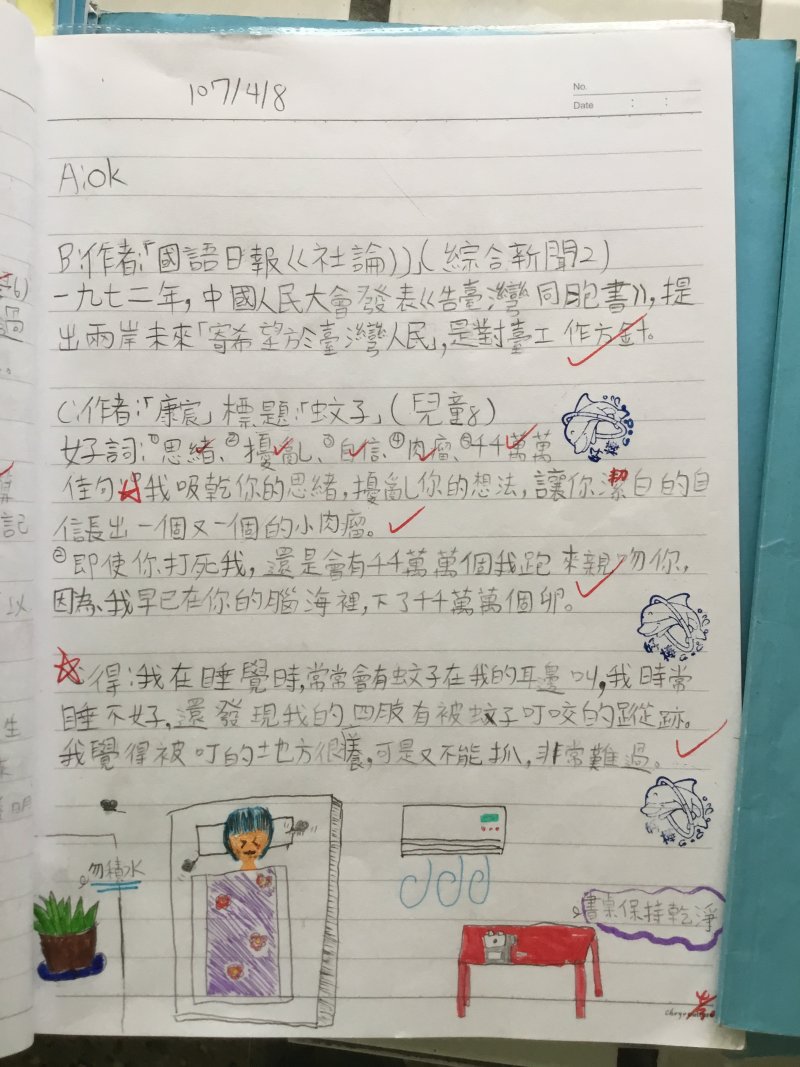 107/4/8
No.
Date : :
A:ok
B:作者:「國語日報《社論》」(綜合新聞2)
一九七二年,中國人民大會發表《告臺灣同胞書》,提
出兩岸未來「寄希望於臺灣人民」,是對臺工作方針。
C:作者:「康宸」標題:「蚊子」(兒童8)
好詞:①思緒、②擾亂、③自信、④肉瘤、⑤千千萬萬
佳句:我吸乾你的思緒,擾亂你的想法,讓你潔白的自
信長出一個又一個的小肉瘤。
②即使你打死我,還是會有千千萬萬個我跑來親吻你,
因為、我早已在你的腦海裡,下了千千萬萬個卵。
心得:我在睡覺時,常常會有蚊子在我的耳邊叫,我時常
睡不好,還發現我的四肢有被蚊子叮咬的蹤跡。
我覺得被叮的地方很癢,可是又不能抓,非常難過。
勿積水
書桌保持乾淨